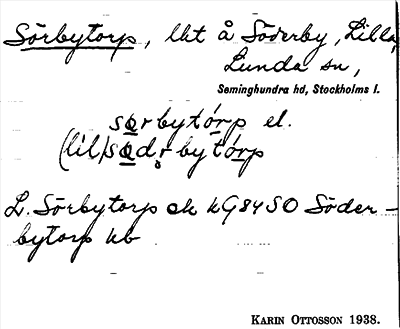 Sörbytorp, lht å Söderby, Lilla,
Lunda sn,
Seminghundra hd, Stockholms l.
sørbytórp el.
(lil)sødrbytórp
L. Sörbytorp ek kG84SO Söder-
bytorp kb
KARIN OTTOSSON 1938.